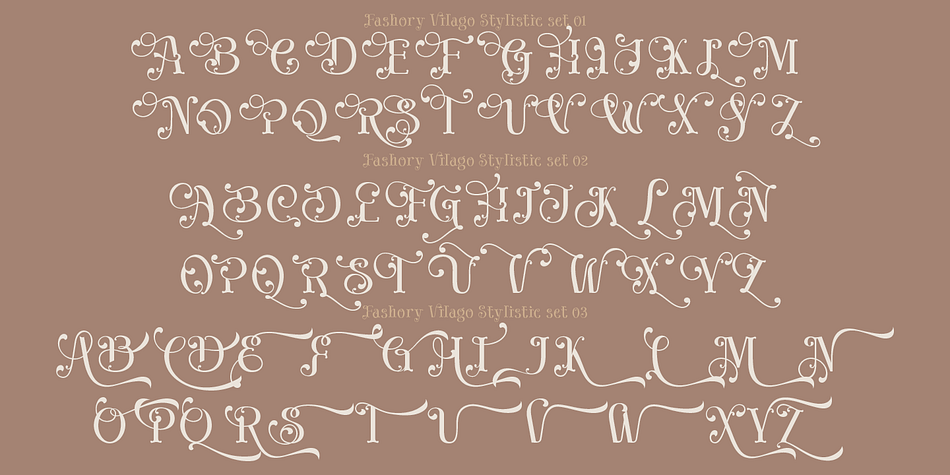 Fashory Vilago Stylistic set 01
A B C D E F G H I J K L M
N O P Q R S T U V W X Y Z
Fashory Vilago Stylistic set 02
A B C D E F G H I J K L M N
O P Q R S T U V W X Y Z
Fashory Vilago Stylistic set 03
A B C D E F G H I J K L M N
O P Q R S T U V W X Y Z